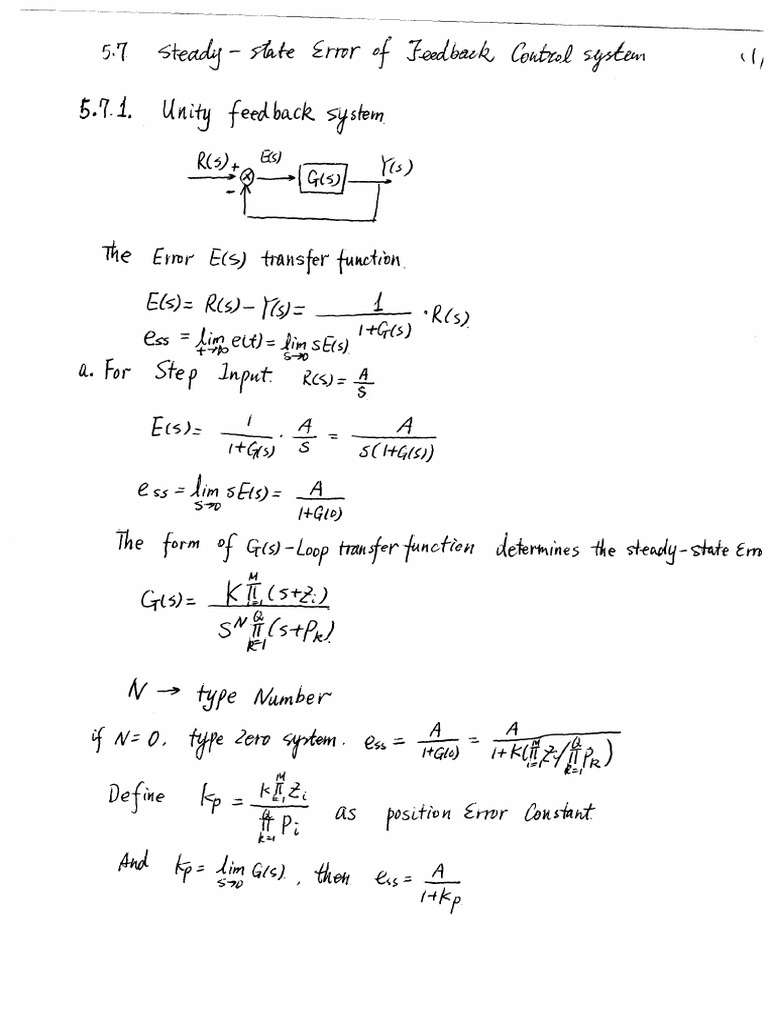 5.7 Steady-state Error of Feedback Control system (1)
5.7.1. Unity feedback system
R(s) + E(s) G(s) Y(s)
-
The Error E(s) transfer function.
E(s) = R(s) - Y(s) = 1/(1+G(s)) · R(s)
ess = lim t→∞ e(t) = lim s→0 sE(s)
a. For Step Input. R(s) = A/s
E(s) = 1/(1+G(s)) · A/s = A/(s(1+G(s)))
ess = lim s→0 sE(s) = A/(1+G(0))
The form of G(s)-Loop transfer function determines the steady-state Erro
G(s) = K ∏_{i=1}^{M} (s+Zi) / (s^N ∏_{k=1}^{Q} (s+Pk))
N → type Number
if N=0, type Zero system. ess = A/(1+G(0)) = A/(1+K(∏_{i=1}^{M} Zi / ∏_{k=1}^{Q} Pk))
Define kp = k ∏_{i=1}^{M} Zi / ∏_{k=1}^{Q} Pi as position Error Constant.
And kp = lim s→0 G(s), then ess = A/(1+kp)